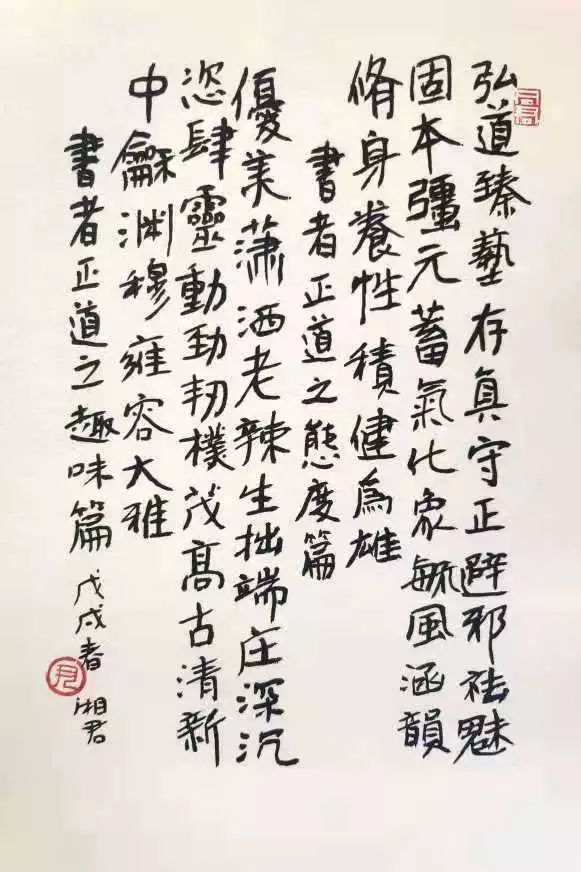 弘道臻藝存真守正避邪祛魅
固本彊元蓄氣化象毓風涵韻
脩身養性積健爲雄
書者正道之態度篇
優美潇洒老辣生拙端庄深沉
恣肆靈動勁韧樸茂高古清新
中龢渊穆雍容大雅
書者正道之趣味篇
戊戌春
湘君